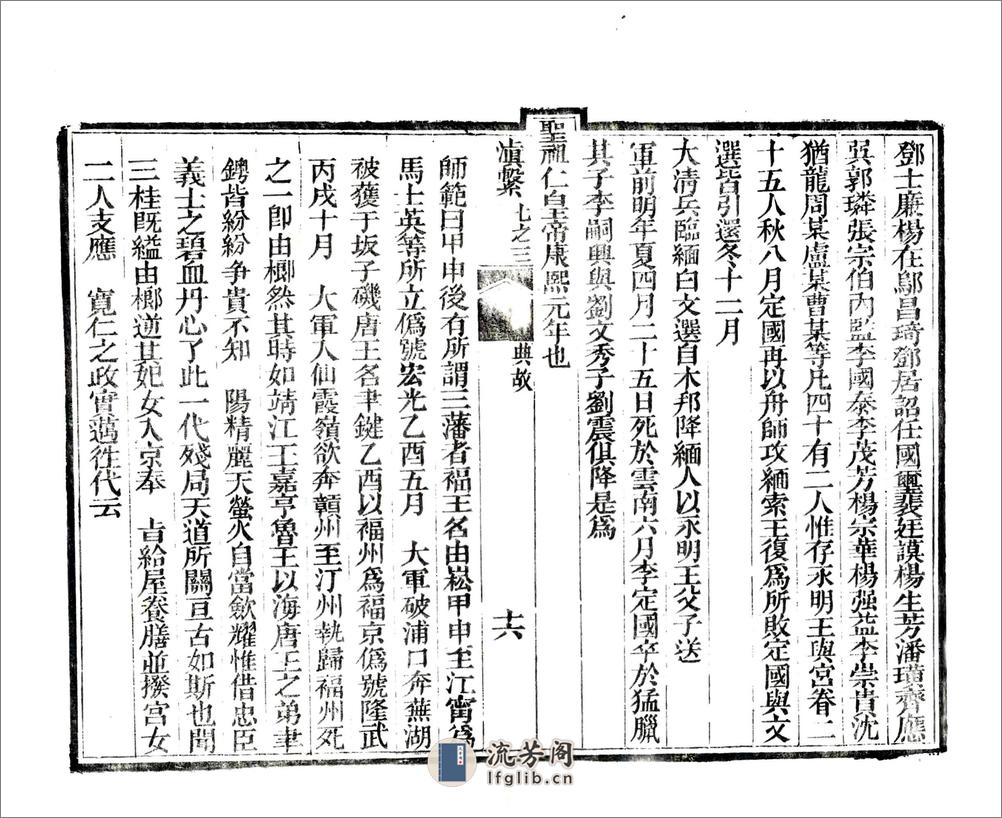 鄧士廉楊在鄔昌琦鄧居詔任國璽裴廷謨楊生芳潘璜齊應
巽郭璘張宗伯內監李國泰李茂芳楊宗華楊强益李崇貴沈
猶龍周某盧某曹某等凡四十有二人惟存永明王與宮眷二
十五人秋八月定國再以舟師攻緬索王復爲所敗定國與文
選皆引還冬十二月
大淸兵臨緬白文選自木邦降緬人以永明王父子送
軍前明年夏四月二十五日死於雲南六月李定國卒於猛臘
其子李嗣興與劉文秀子劉震俱降是爲
聖祖仁皇帝康熙元年也
滇繫 七之三 典故 十六
師範曰甲申後有所謂三藩者福王名由崧甲申至江甯爲
馬士英等所立僞號宏光乙酉五月 大軍破浦口奔蕪湖
被獲于坂子磯唐王名聿鍵乙酉以福州爲福京僞號隆武
丙戌十月 大軍入仙霞嶺欲奔贛州至汀州執歸福州死
之一卽由榔然其時如靖江王嘉亨魯王以海唐王之弟聿
鐭皆紛紛爭貴不知 陽精麗天螢火自當歛耀惟借忠臣
義士之碧血丹心了此一代殘局天道所關亘古如斯也聞
三桂旣縊由榔逆其妃女入京奉 旨給屋養膳並撥宮女
二人支應 寬仁之政實邁徃代云
流芳阁
lfglib.cn